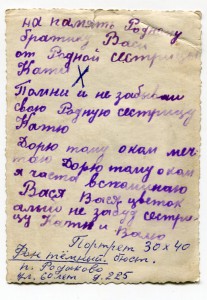 на память Родному
братику Васи
от Родной сестрицы
Кати
Помни и не забывай
свою Родную сестрицу
Катю
Дорю тому о ком меч
таю Дорю тому о ком
я часта вспоминаю
Вася Вася цветок
алий не забуд сестри
цу Катю и Валю
Портрет 30 х 40
Фон тёмный. Пост.
п. Родиково
ул. Совет д. 225